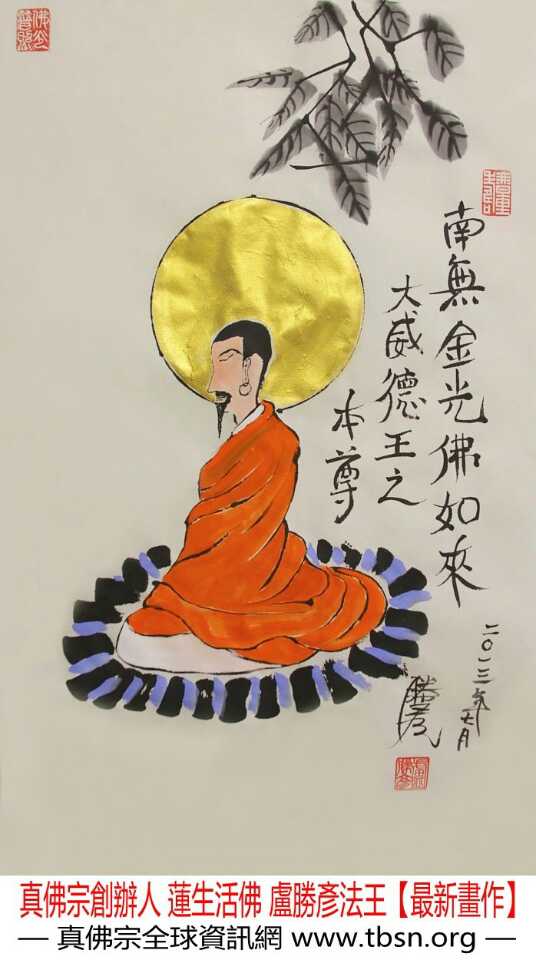 佛光普照
南無金光佛如來
大威德王之
本尊
二〇一三年七月
勝彥
真佛宗創辦人 蓮生活佛 盧勝彥法王【最新畫作】
— 真佛宗全球資訊網 www.tbsn.org —